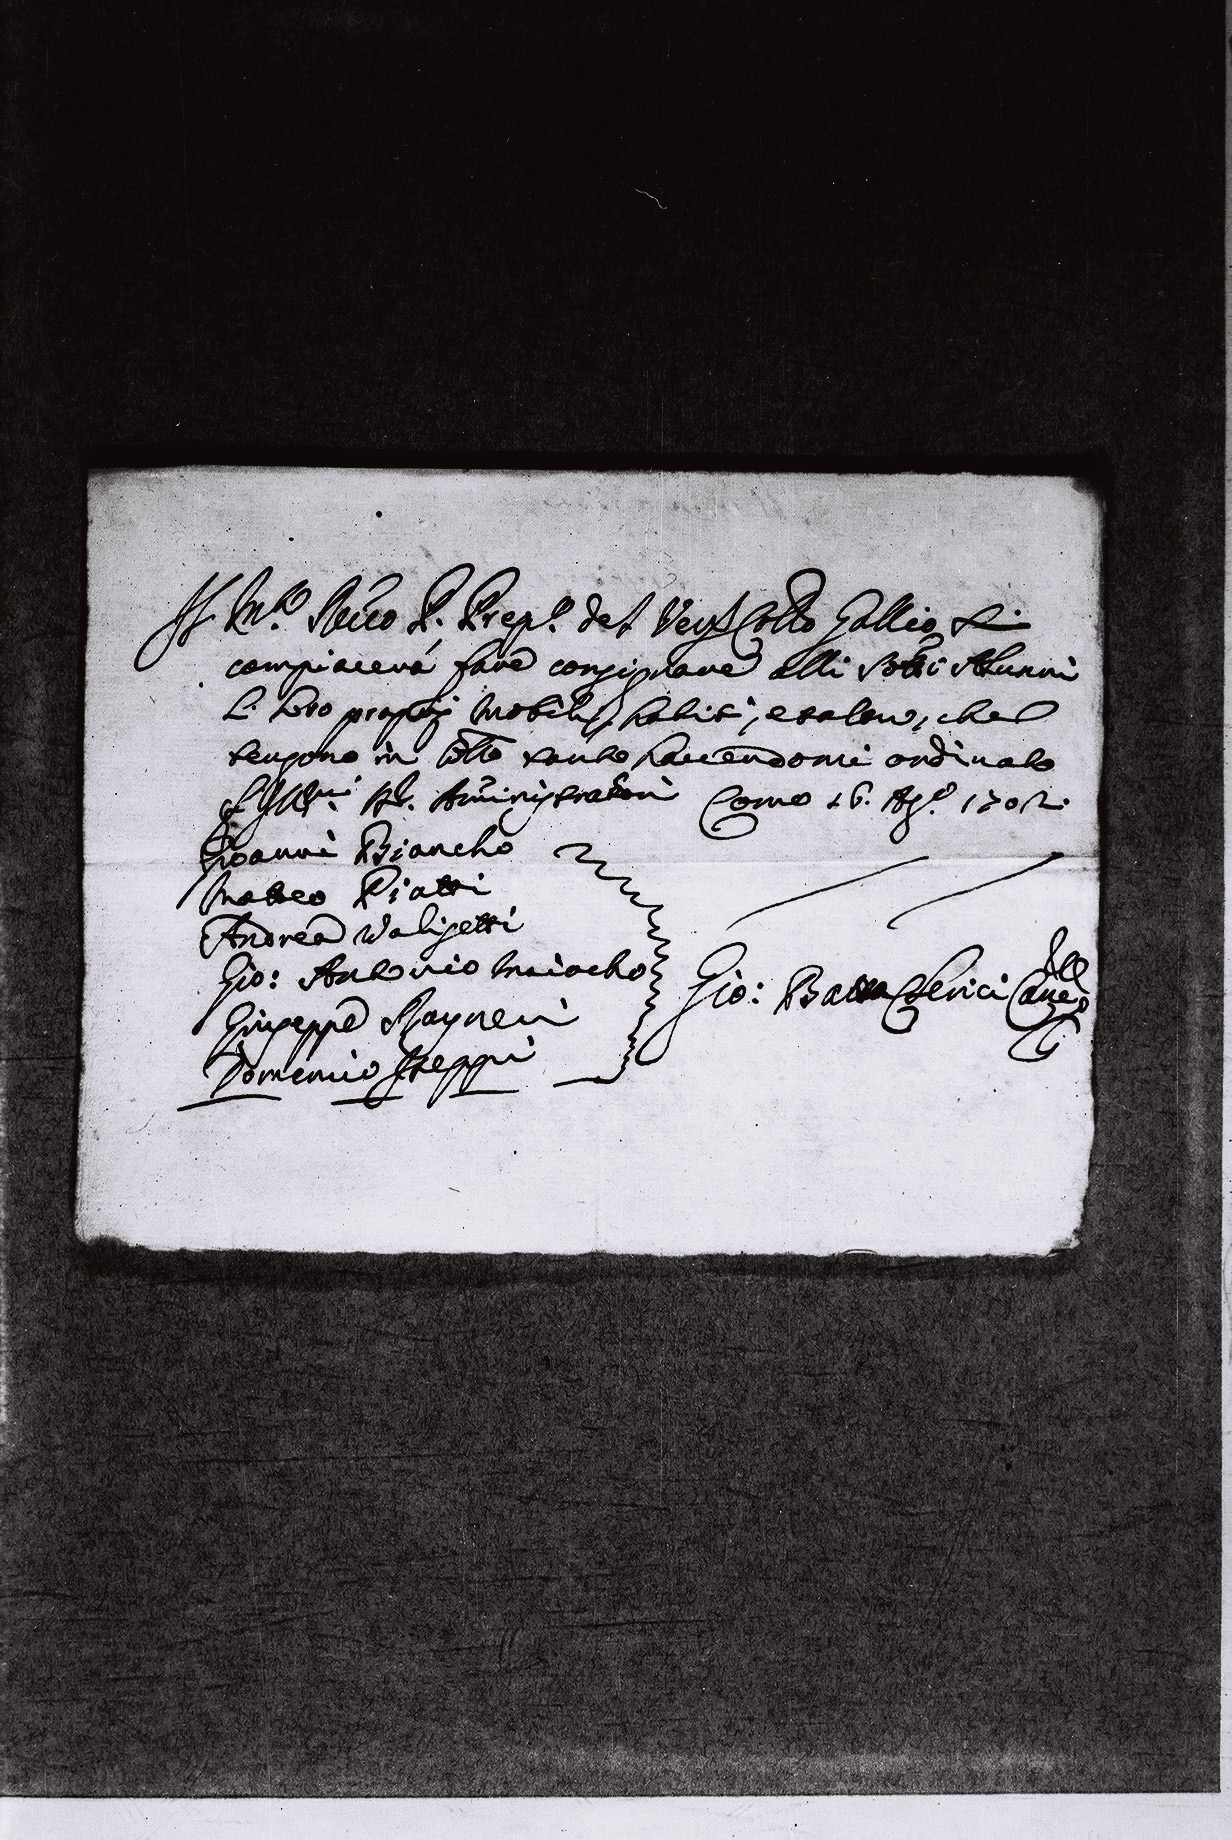 Il M.to Re.do P. Prep.to del Ven. Coll.o Gallio si
compiacerà fare consignare alli sotti Alunni
li loro proprij mobili, habiti, et altro, che
tengono in Coll.o tanto havendomi ordinato
SS.ri Aministratori Como 16. Ag.o 1702.
Gioanni Biancho
Matteo Piatti
Andrea Valisetti
Gio: Antonio Maiocho
Giuseppe Rayneri
Domenico Steppi
Gio: Batta Clerici Canc.o